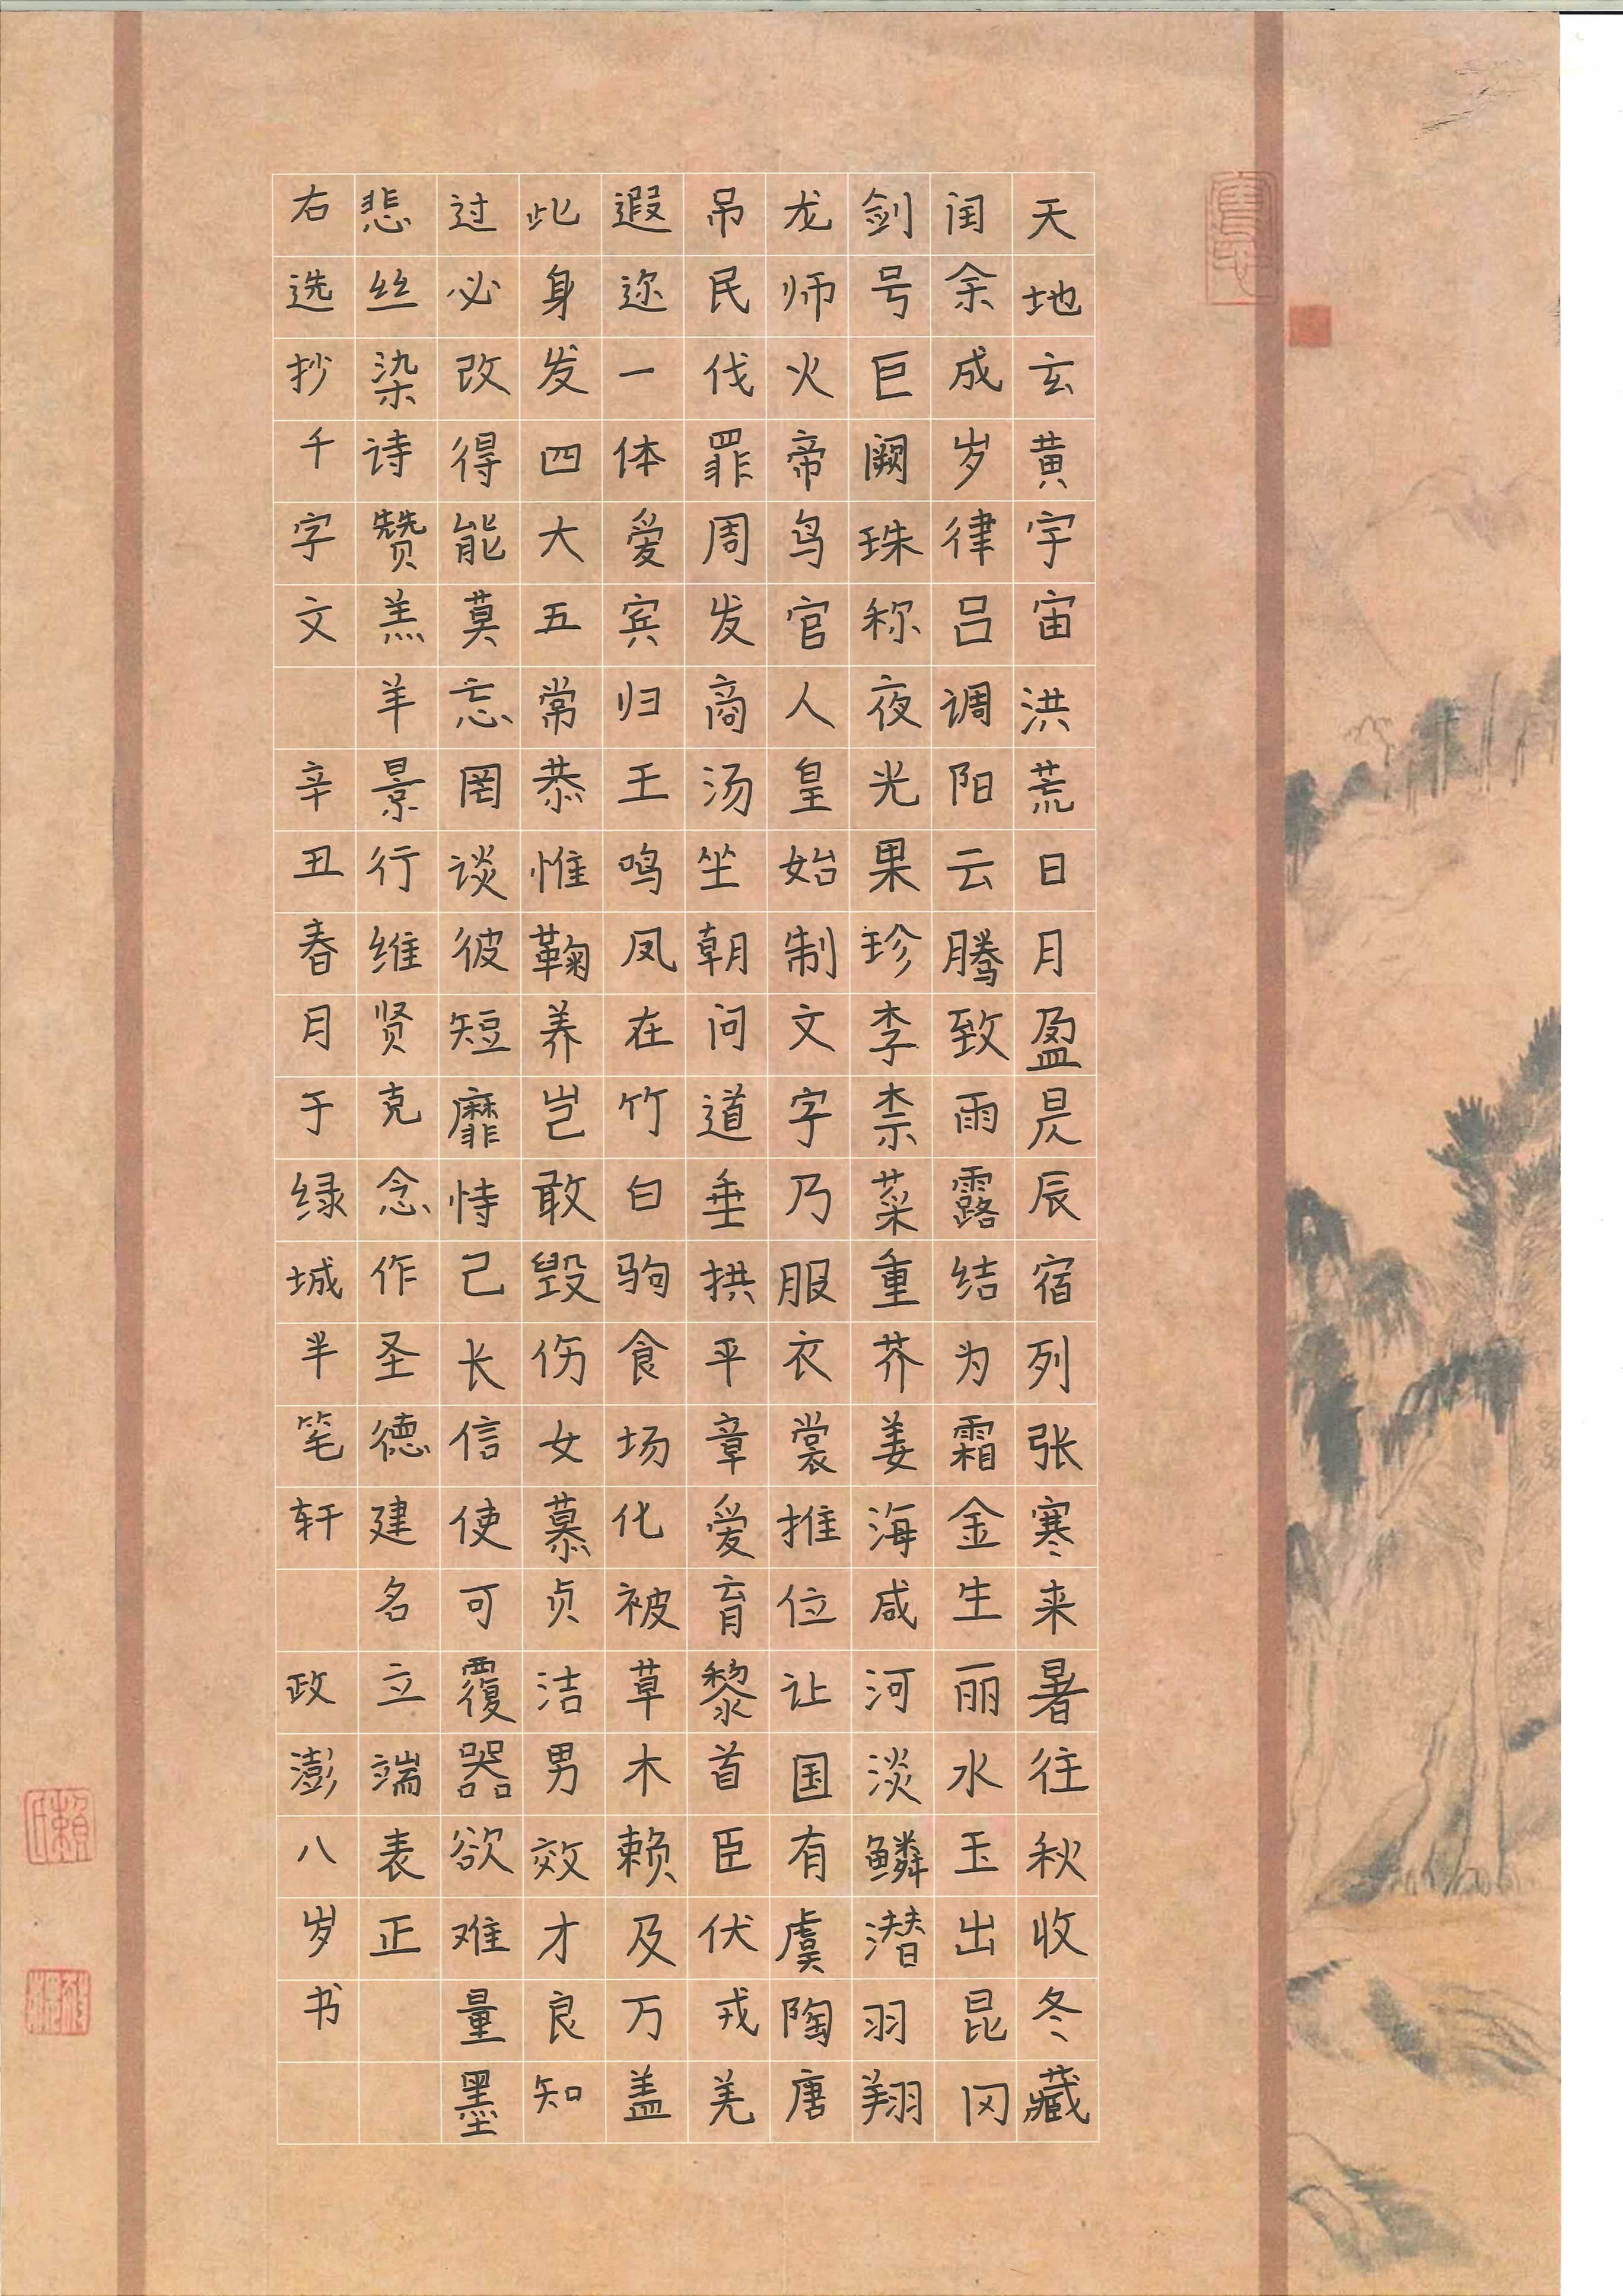 天地玄黄宇宙洪荒日月盈昃辰宿列张寒来暑往秋收冬藏
闰余成岁律吕调阳云腾致雨露结为霜金生丽水玉出昆冈
剑号巨阙珠称夜光果珍李柰菜重芥姜海咸河淡鳞潜羽翔
龙师火帝鸟官人皇始制文字乃服衣裳推位让国有虞陶唐
吊民伐罪周发商汤坐朝问道垂拱平章爱育黎首臣伏戎羌
遐迩一体爱宾归王鸣凤在竹白驹食场化被草木赖及万盖
此身发四大五常恭惟鞠养岂敢毁伤女慕贞洁男效才良知
过必改得能莫忘罔谈彼短靡恃己长信使可覆器欲难量墨
悲丝染诗赞羔羊景行维贤克念作圣德建名立端表正
右选抄千字文 辛丑春月于绿城半笔轩 政澎八岁书